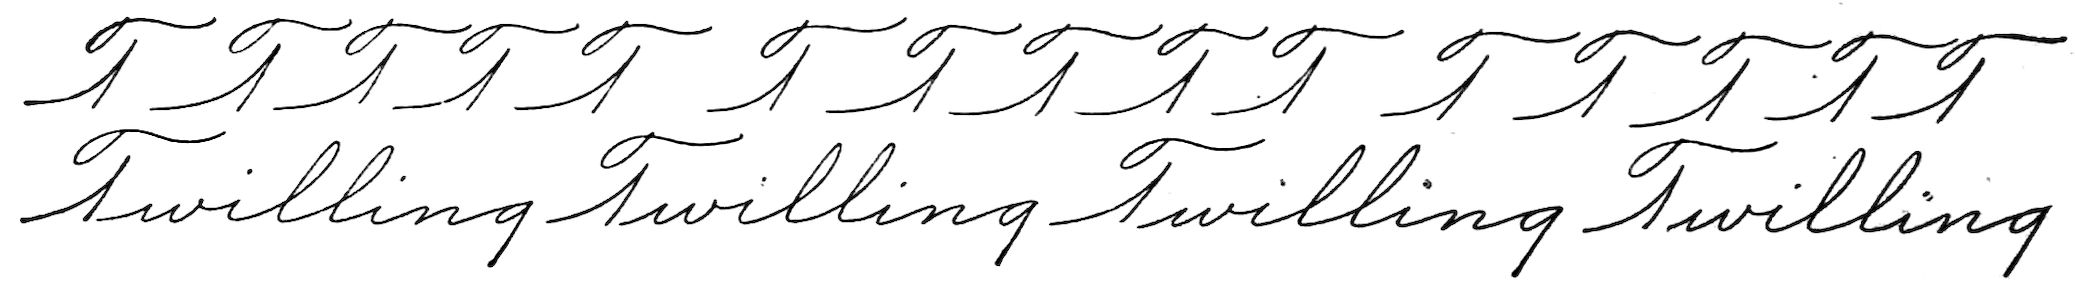 T T T T T T T T T T T T T T T
Twilling Twilling Twilling Twilling